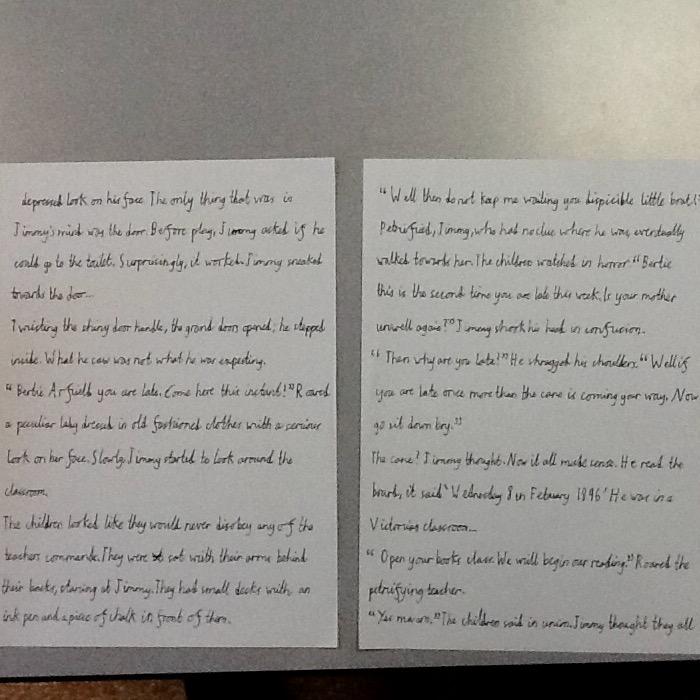 depressed look on his face. The only thing that was in
Jimmy's mind was the door. Before play, Jimmy asked if he
could go to the toilet. Surprisingly, it worked. Jimmy sneaked
towards the door...
Twisting the shiny door handle, the grand door opened; he stepped
inside. What he saw was not what he was expecting.
"Bertie Arfield you are late. Come here this instant!" Roared
a peculiar lady dressed in old fashioned clothes with a serious
look on her face. Slowly Jimmy started to look around the
classroom.
The children looked like they would never disobey any of the
teachers commands. They were sat with their arms behind
their backs, staring at Jimmy. They had small desks with an
ink pen and a piece of chalk in front of them.
"Well then do not keep me waiting you dispicible little brat!"
Petrified, Jimmy, who had no clue where he was eventually
walked towards her. The children watched in horror. "Bertie
this is the second time you are late this week. Is your mother
unwell again?" Jimmy shook his head in confusion.
"Then why are you late?" He shrugged his shoulders. "Well if
you are late once more than the cane is coming your way. Now
go sit down boy."
The cane? Jimmy thought. Now it all made sense. He read the
board, it said 'Wednesday 8th Febuary 1896' He was in a
Victorian classroom...
"Open your books class. We will begin our reading." Roared the
petrifying teacher.
"Yes ma'am." The children said in unison. Jimmy thought they all